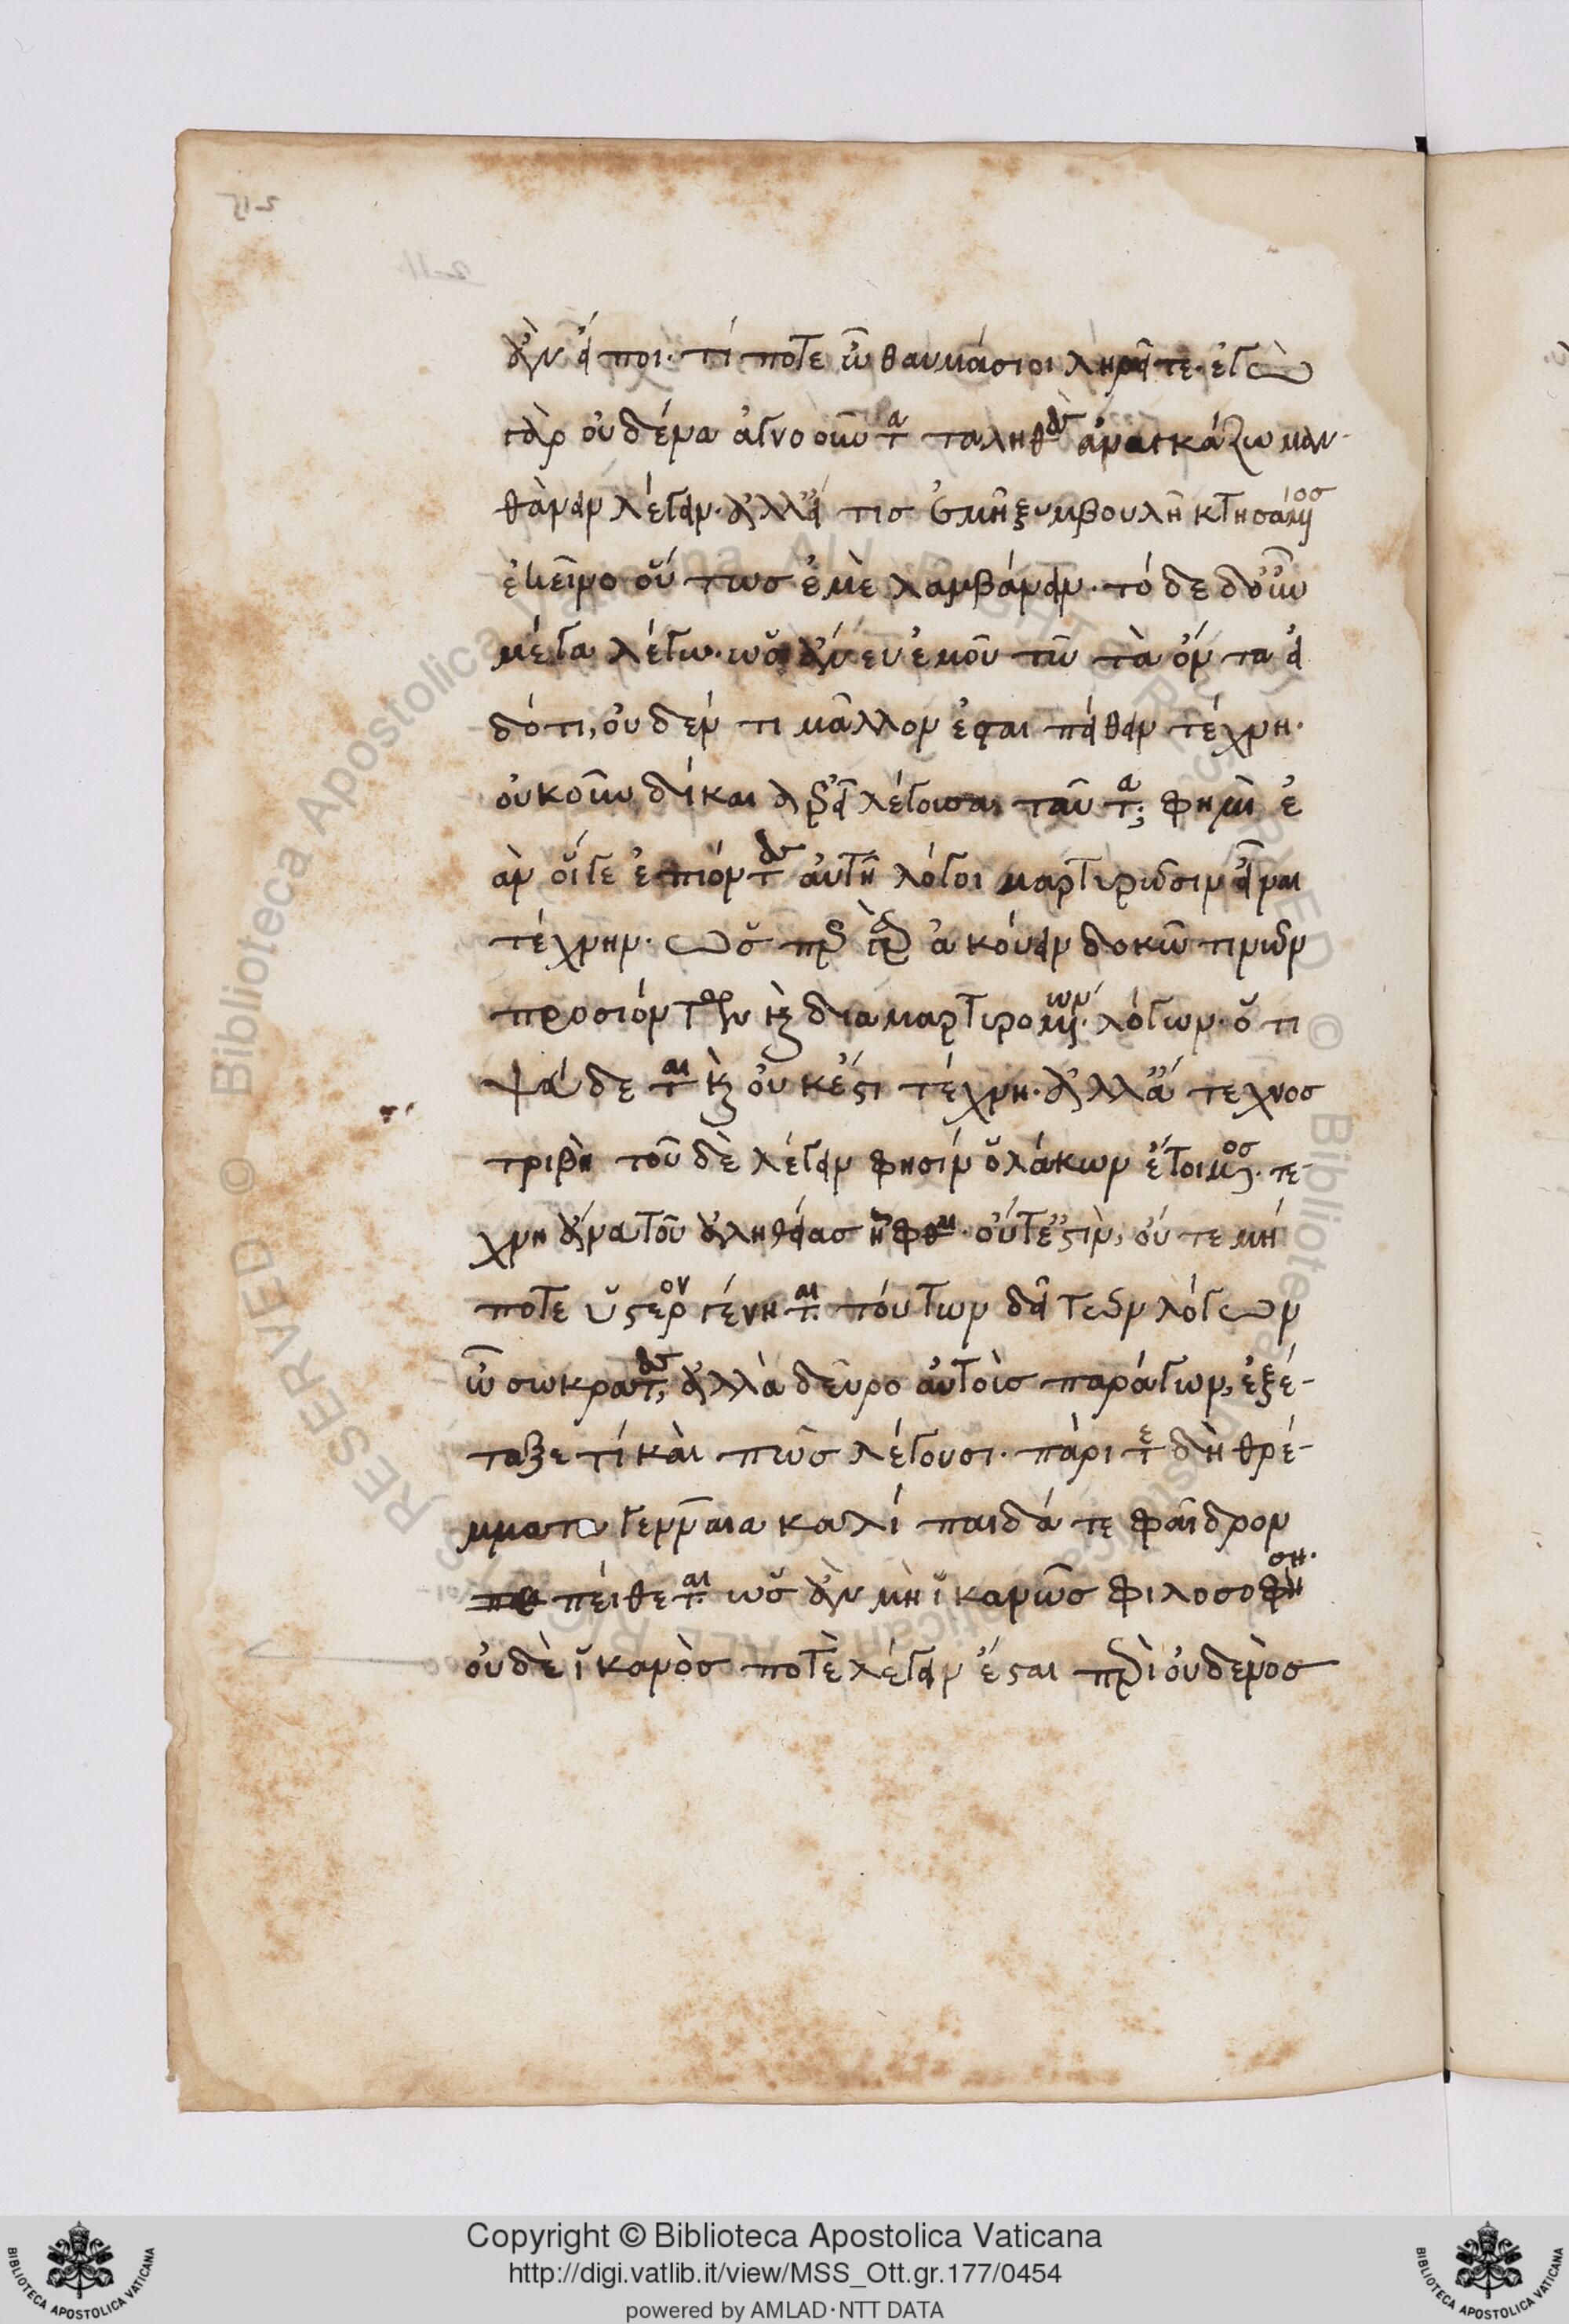 ἂν εἴποι· τί ποτε ὦ θαυμάσιοι ληρεῖτε· ἐγὼ
γὰρ οὐδένα ἀγνοοῦντα ταληθὲς ἀναγκάζω μαν-
θάνειν λέγειν· ἀλλ' εἴ τις ἐμῆ ξυμβουλῆ κτησάμενος
ἐκεῖνο οὕτως ἐμὲ λαμβάνειν· τόδε δ' οὖν
μέγα λέγω· ὡς ἄνευ ἐμοῦ τῶ τὰ ὄντα εἰ
δότι, οὐδέν τι μᾶλλον ἔσται πείθειν τέχνη·
οὐκοῦν δίκαια ἐρεῖ λέγουσα ταῦτα; φημὶ ἐ
ὰν οἵγε ἐπιόντες αὐτῆ λόγοι μαρτυρῶσιν εἶναι
τέχνην· ὥσπερ γὰρ ἀκούειν δοκῶ τινῶν
προσιόντων καὶ διαμαρτυρομένων λόγων· ὅτι
ψεύδεται καὶ οὐκ ἔστι τέχνη· ἀλλ' ἄτεχνος
τριβὴ τοῦ δὲ λέγειν φησίν ὁ λάκων ἔτοιμος· τέ-
χνη ἄνευ τοῦ ἀληθείας ἧφθαι· οὔτ' ἔστιν, οὔτε μή
ποτε ὕστερον γένηται· τούτων δεῖ τῶν λόγων
ὦ σώκρατες, ἀλλὰ δεῦρο αὐτοὺς παράγων, ἐξέ-
ταζε τί καὶ πῶς λέγουσι· πάριτε δὴ θρέ-
μματα γενναῖα καλλί παιδά τε φαῖδρον
πείθετε ὡς ἂν μὴ ἱκανῶς φιλοσοφήση·
οὐδὲ ἱκανὸς ποτὲ λέγειν ἔσται περὶ οὐδενὸς
Copyright © Biblioteca Apostolica Vaticana
http://digi.vatlib.it/view/MSS_Ott.gr.177/0454
powered by AMLAD·NTT DATA